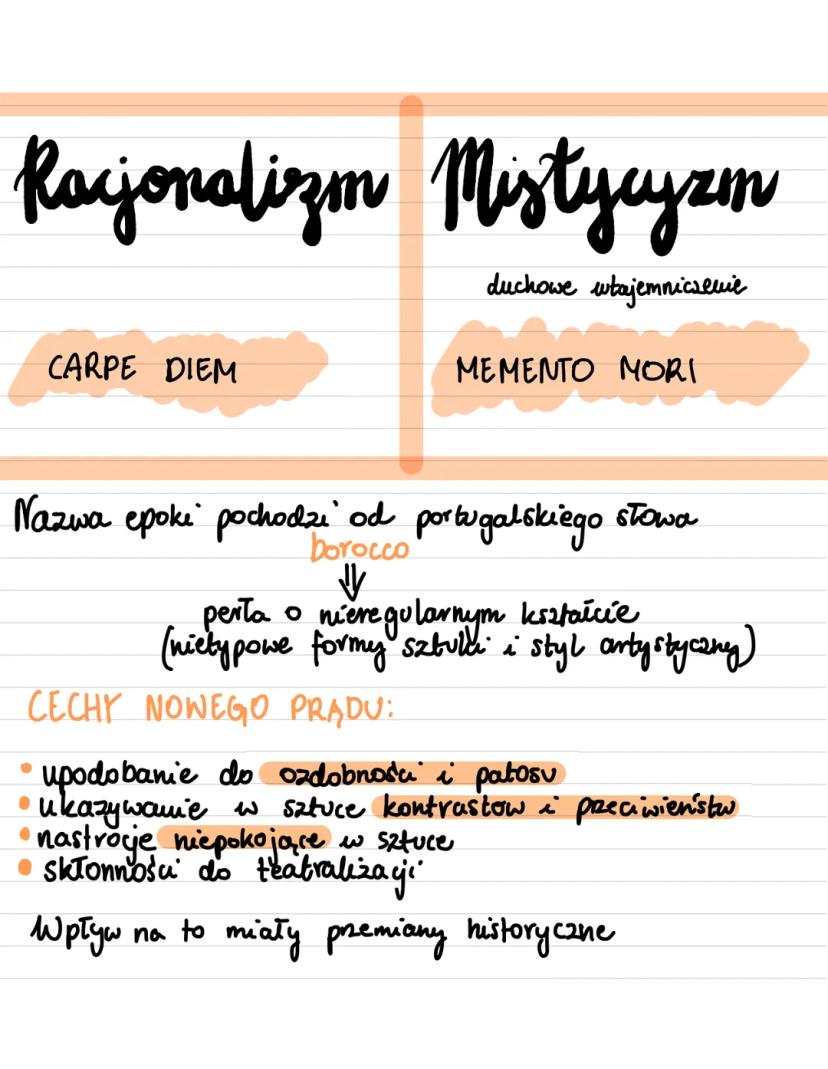 Racjonalizm
Mistycyzm
duchowe wtajemniczenie
CARPE DIEM
MEMENTO MORI
Nazwa epoki pochodzi od portugalskiego słowa
borocco
perła o nieregularnym kształcie
(nietypowe formy sztuki i styl artystyczny)
CECHY NOWEGO PRĄDU:
• upodobanie do ozdobności i patosu
• ukazywanie w sztuce kontrastow i przeciwieństw
• nastroje niepokojące w sztuce
• skłonności do teatralizacji
Wpływ na to miały przemiany historyczne